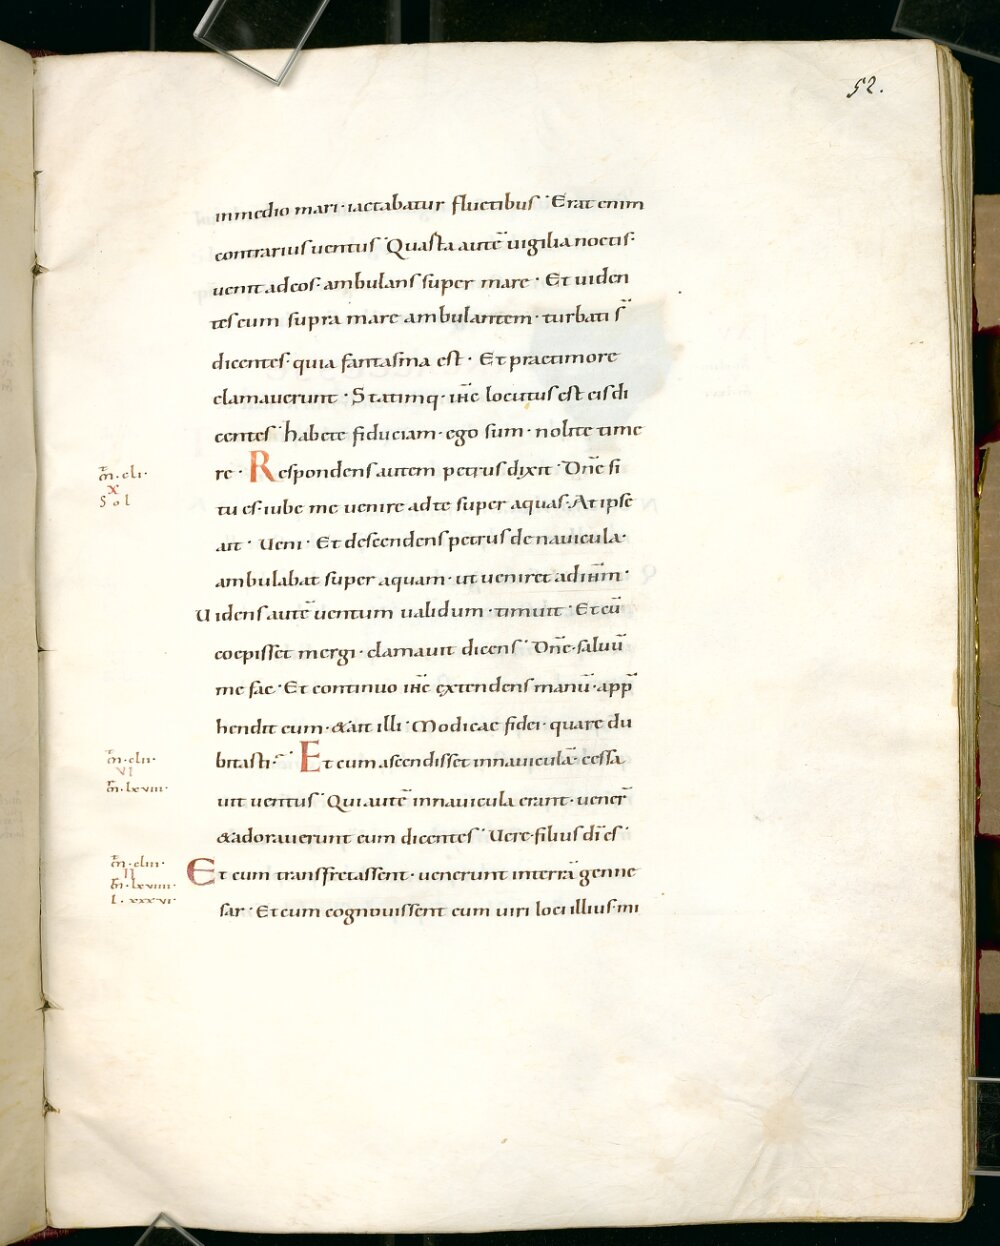 52.
inmedio mari· iactabatur fluctibus· Erat enim
contrarius uentus· Quarta autē uigilia noctis·
uenit adeos· ambulans super mare· Et uiden
tes eum supra mare ambulantem· turbati s̄
dicentes· quia fantasma est· Et praetimore
clamauerunt· Statimq· ihc̄ locutus est eis di
centes· habete fiduciam· ego sum· nolite time
re· Respondens autem petrus dixit· Dn̄e si
tu es· iube me uenire adte super aquas· At ipse
ait· Ueni· Et descendens petrus de nauicula·
ambulabat super aquam· ut ueniret adih̄m·
Uidens autē uentum ualidum· timuit· Et cū
coepisset mergi· clamauit dicens· Dn̄e· saluū
me fac· Et continuo ihc̄ extendens manū· app̄
hendit eum· &ait illi· Modicae fidei· quare du
bitasti· Et cum ascendisset innauiculā· cessa
uit uentus· Qui autē innauicula erant· uener̄
&adorauerunt eum dicentes· Uere· filius dī es·
Et cum transfretassent· uenerunt interrā genne
sar· Et cum cognouissent eum uiri loci illius· mi
m̄· cli·
X
Sol
m̄· clii·
VI
m̄· lxviii·
m̄· cliii·
II
m̄· lxviiii·
l· xxxvi·